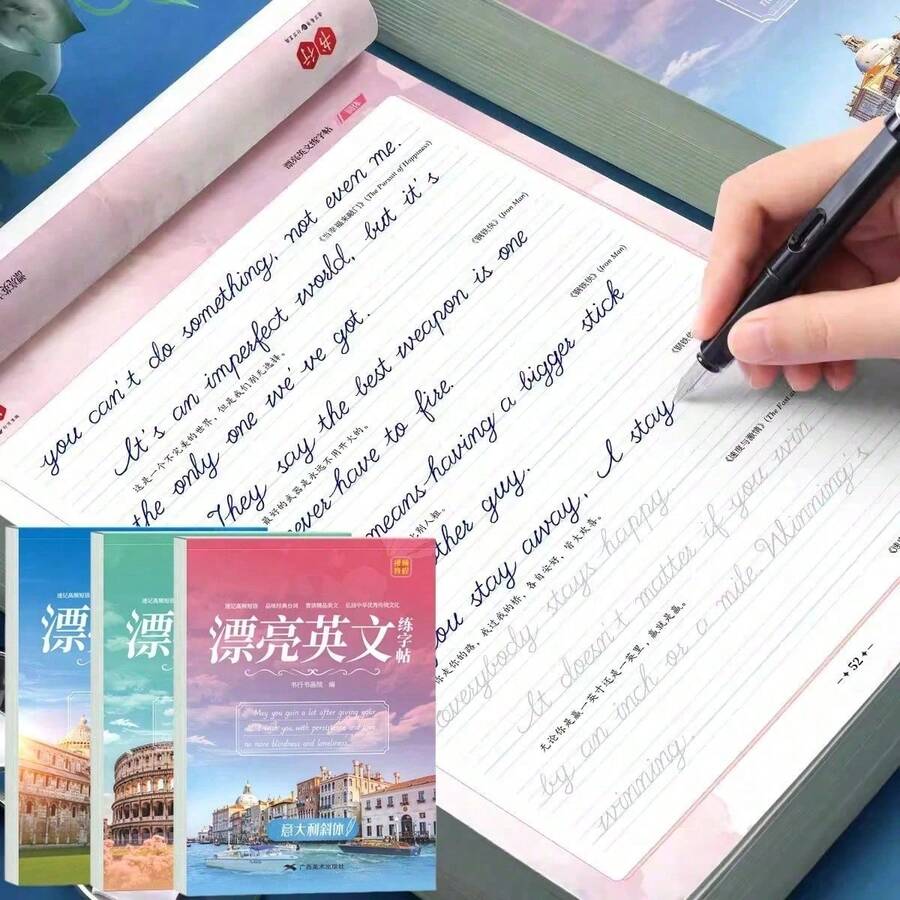 书行
漂亮英文练字帖
you can't do something, not even me.
《当幸福来敲门》(The Pursuit of Happiness)
It's an imperfect world, but it's
这是一个不完美的世界，但是我们别无选择。
《钢铁侠》(Iron Man)
the only one we've got.
They say the best weapon is one
最好的武器是永远不用开火的。
《钢铁侠》(Iron Man)
never have to fire.
means having a bigger stick
《钢铁侠
guy.
you stay away, I stay
走你的路，我过我的桥，各自安好，皆大欢喜。
《速度与激情》(The Fast
everybody stays happy.
It doesn't matter if you win
by an inch or a mile. Winning's
无论你是赢一英寸还是一英里，赢就是赢。
winning.
52
漂
漂
速记高频短语 品味经典台词 赏读精品美文 弘扬中华优秀传统文化
漂亮英文
练字帖
书行书画院 编
May you gain a lot after giving
no more blindness and loneliness.
意大利斜体
广西美术出版社